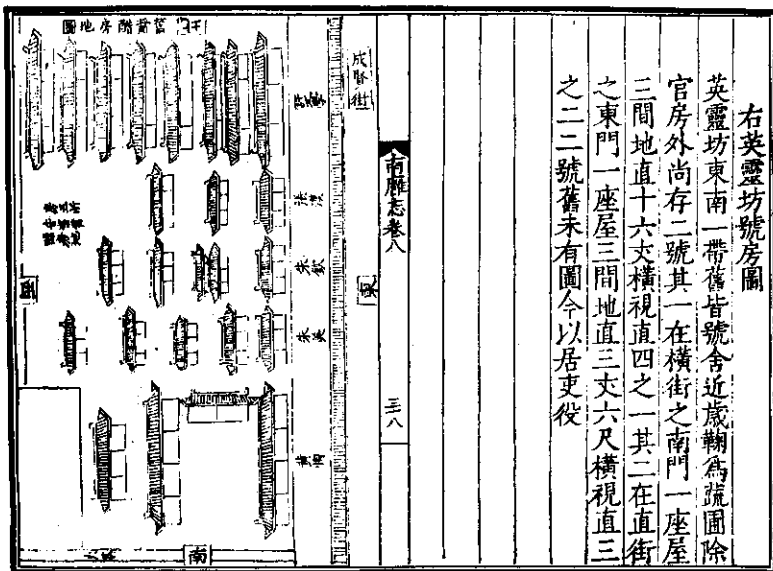 右英靈坊號房圖
英靈坊東南一帶舊皆號舍近歲鞠爲蔬圃除
官房外尚存二號其一在橫街之南門一座屋
三間地直十六丈橫視直四之一其二在直街
之東門一座屋三間地直三丈六尺橫視直三
之二二號舊未有圖今以居吏役
南廱志卷八
三八
成賢街
舊醋房地圖
張漢
朱欽
南